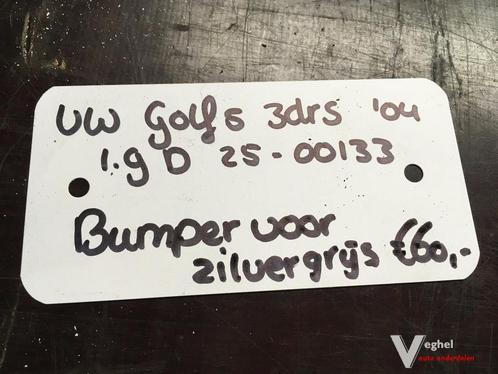 VW Golf 5 3drs '04
1.9 D 25-00133
Bumper voor
zilvergrijs €60,-
Veghel
auto onderdelen